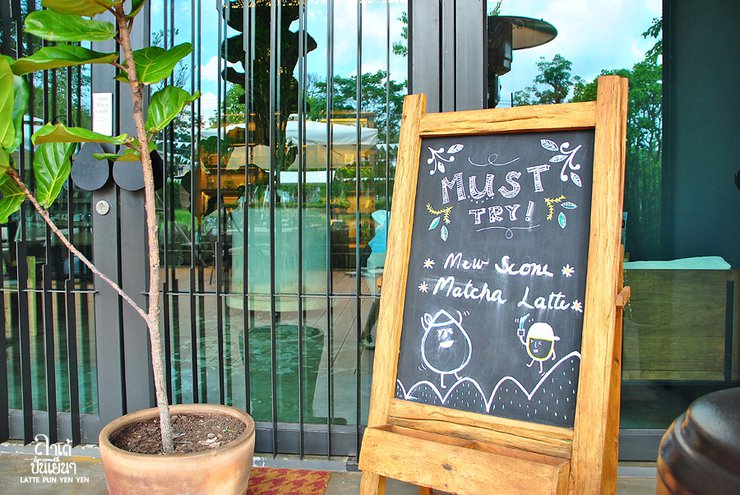 MUST
TRY!
Mew Scone
Matcha Latte
ลาเต้
ปั่นเย็นๆ
LATTE PUN YEN YEN